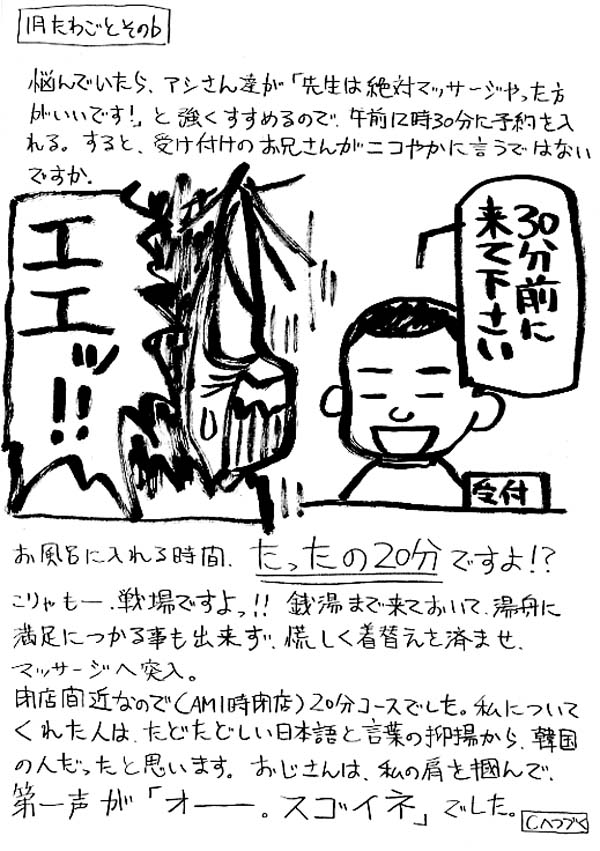 1月たわごとその6
悩んでいたら、アシさん達が「先生は絶対マッサージやった方
がいいです!」と強くすすめるので、午前12時30分に予約を入
れる。すると、受け付けのお兄さんがニコやかに言うではない
ですか。
30分前に
来て下さい
エエッ!!
受付
お風呂に入れる時間、たったの20分ですよ!?
こりゃもー、戦場ですよっ!!銭湯まで来ておいて、湯舟に
満足につかる事も出来ず、慌しく着替えを済ませ、
マッサージへ突入。
閉店間近なので(AM1時閉店)20分コースでした。私について
くれた人は、たどたどしい日本語と言葉の抑揚から、韓国
の人だったと思います。おじさんは、私の肩を掴んで、
第一声が「オーー。スゴイネ」でした。
Cへつづく